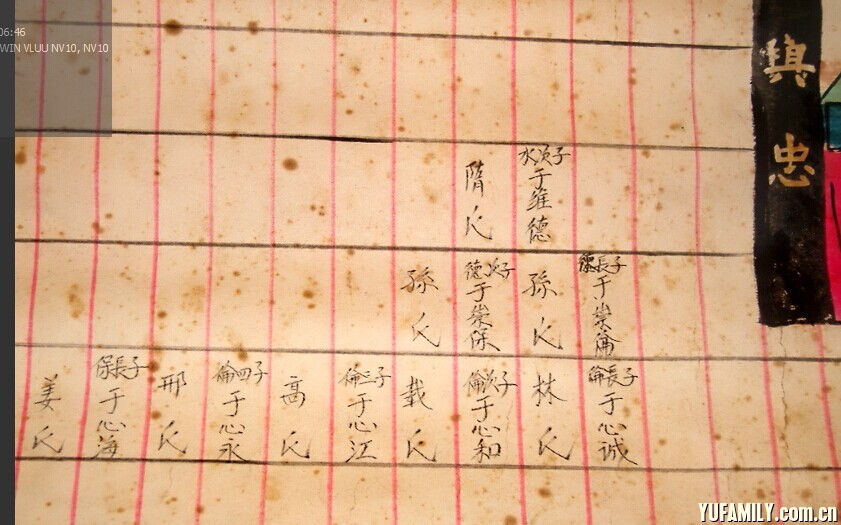 06:46
WIN VLUU NV10, NV10
忠
水次子
于维德
隋氏
德長子
于崇倫
孫氏
德次子
于崇保
孫氏
倫長子
于心诚
林氏
倫次子
于心和
载氏
倫三子
于心江
高氏
倫四子
于心永
邢氏
保長子
于心海
姜氏
YUFAMILY.com.cn